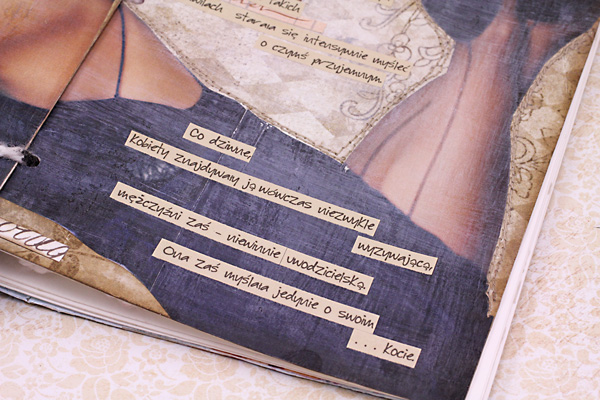 takich
chwilach starała się intensywnie myśleć
o czymś przyjemnym
Co dziwne,
Kobiety znajdywały ją wówczas niezwykle
wyzywającą,
mężczyźni zaś - niewinnie uwodzicielską.
Ona zaś myślała jedynie o swoim
... Kocie.